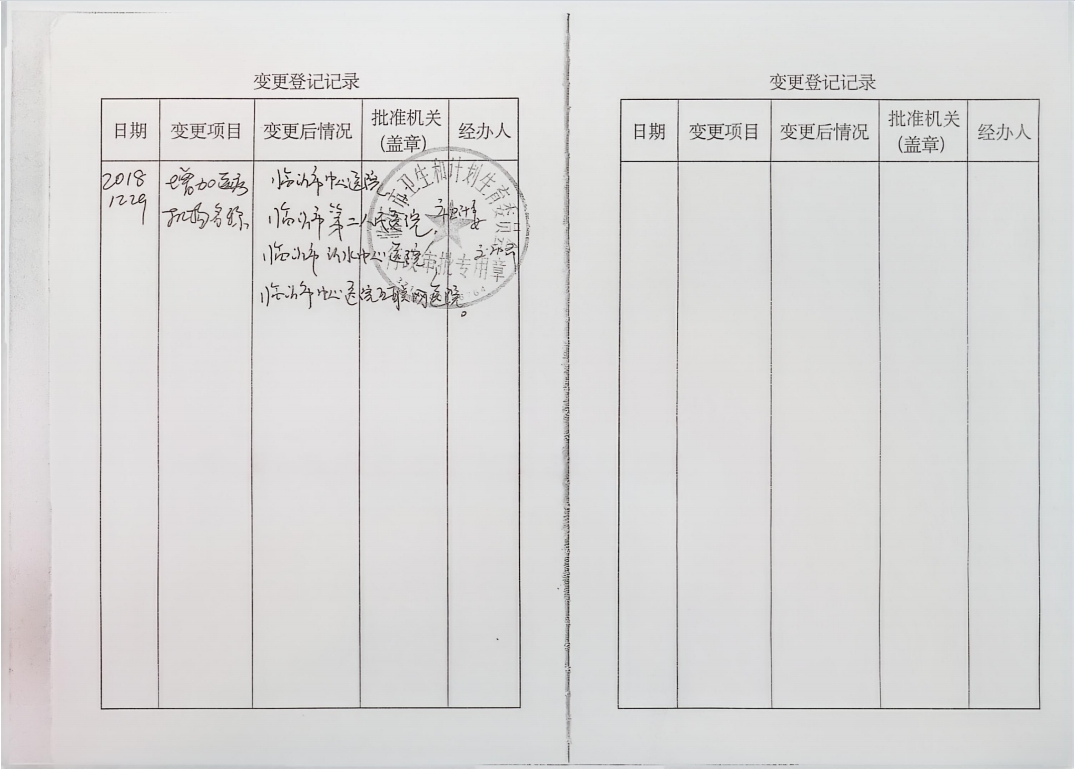 变更登记记录
日期 变更项目 变更后情况 批准机关(盖章) 经办人
2018 增加医疗 临沂市中心医院
1229 机构名称 临沂市第二人民医院, 市卫计委
临沂市沂水中心医院,
临沂市中心医院互联网医院。
市卫生和计划生育委员
行政审批专用章
变更登记记录
日期 变更项目 变更后情况 批准机关(盖章) 经办人